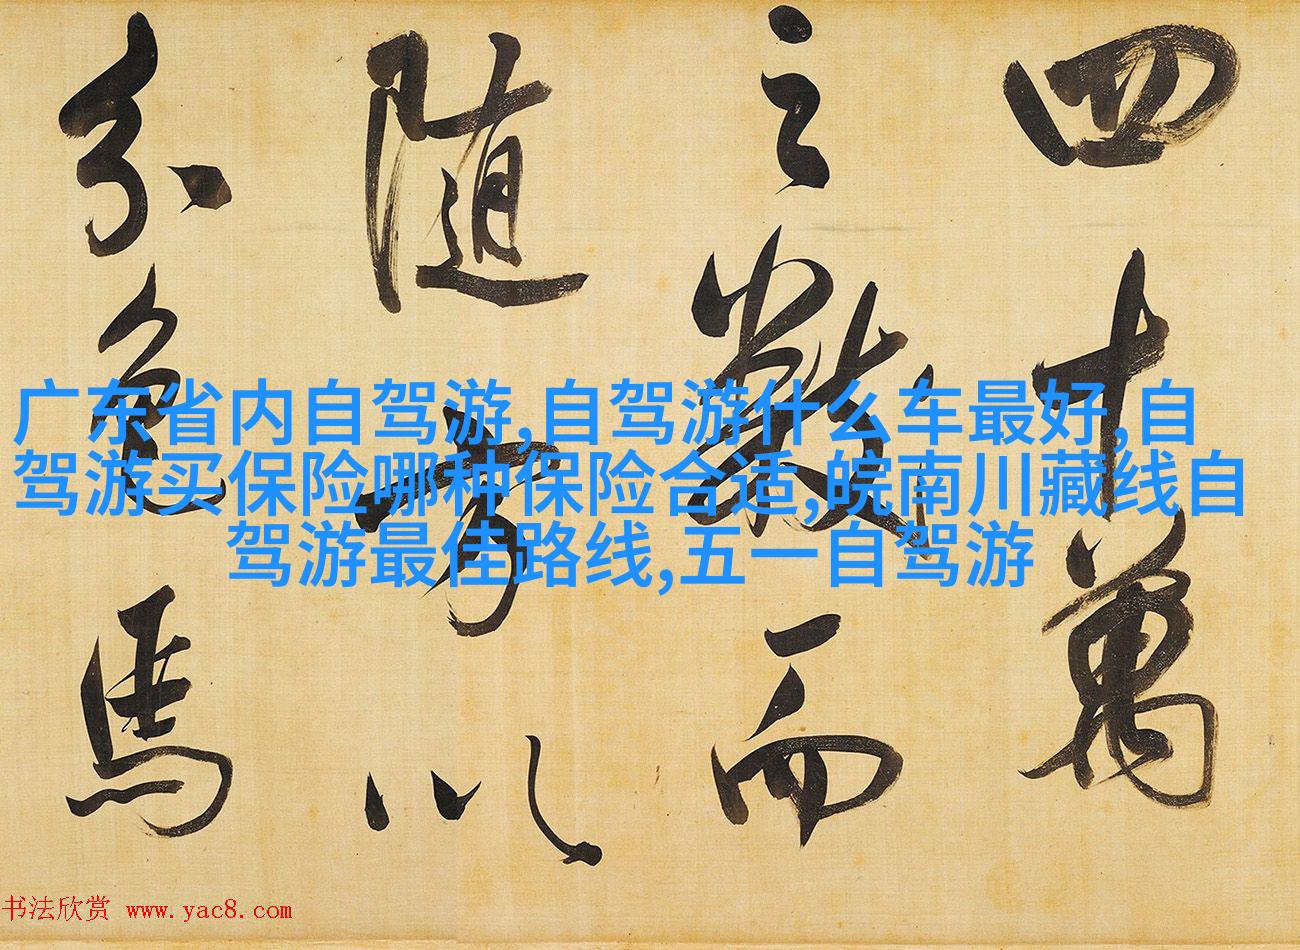 四十萬
之數而
隨方以
分色馬
广东省内自驾游,自驾游什么车最好,自
驾游买保险哪种保险合适,皖南川藏线自
驾游最佳路线,五一自驾游
书法欣赏 www.yac8.com